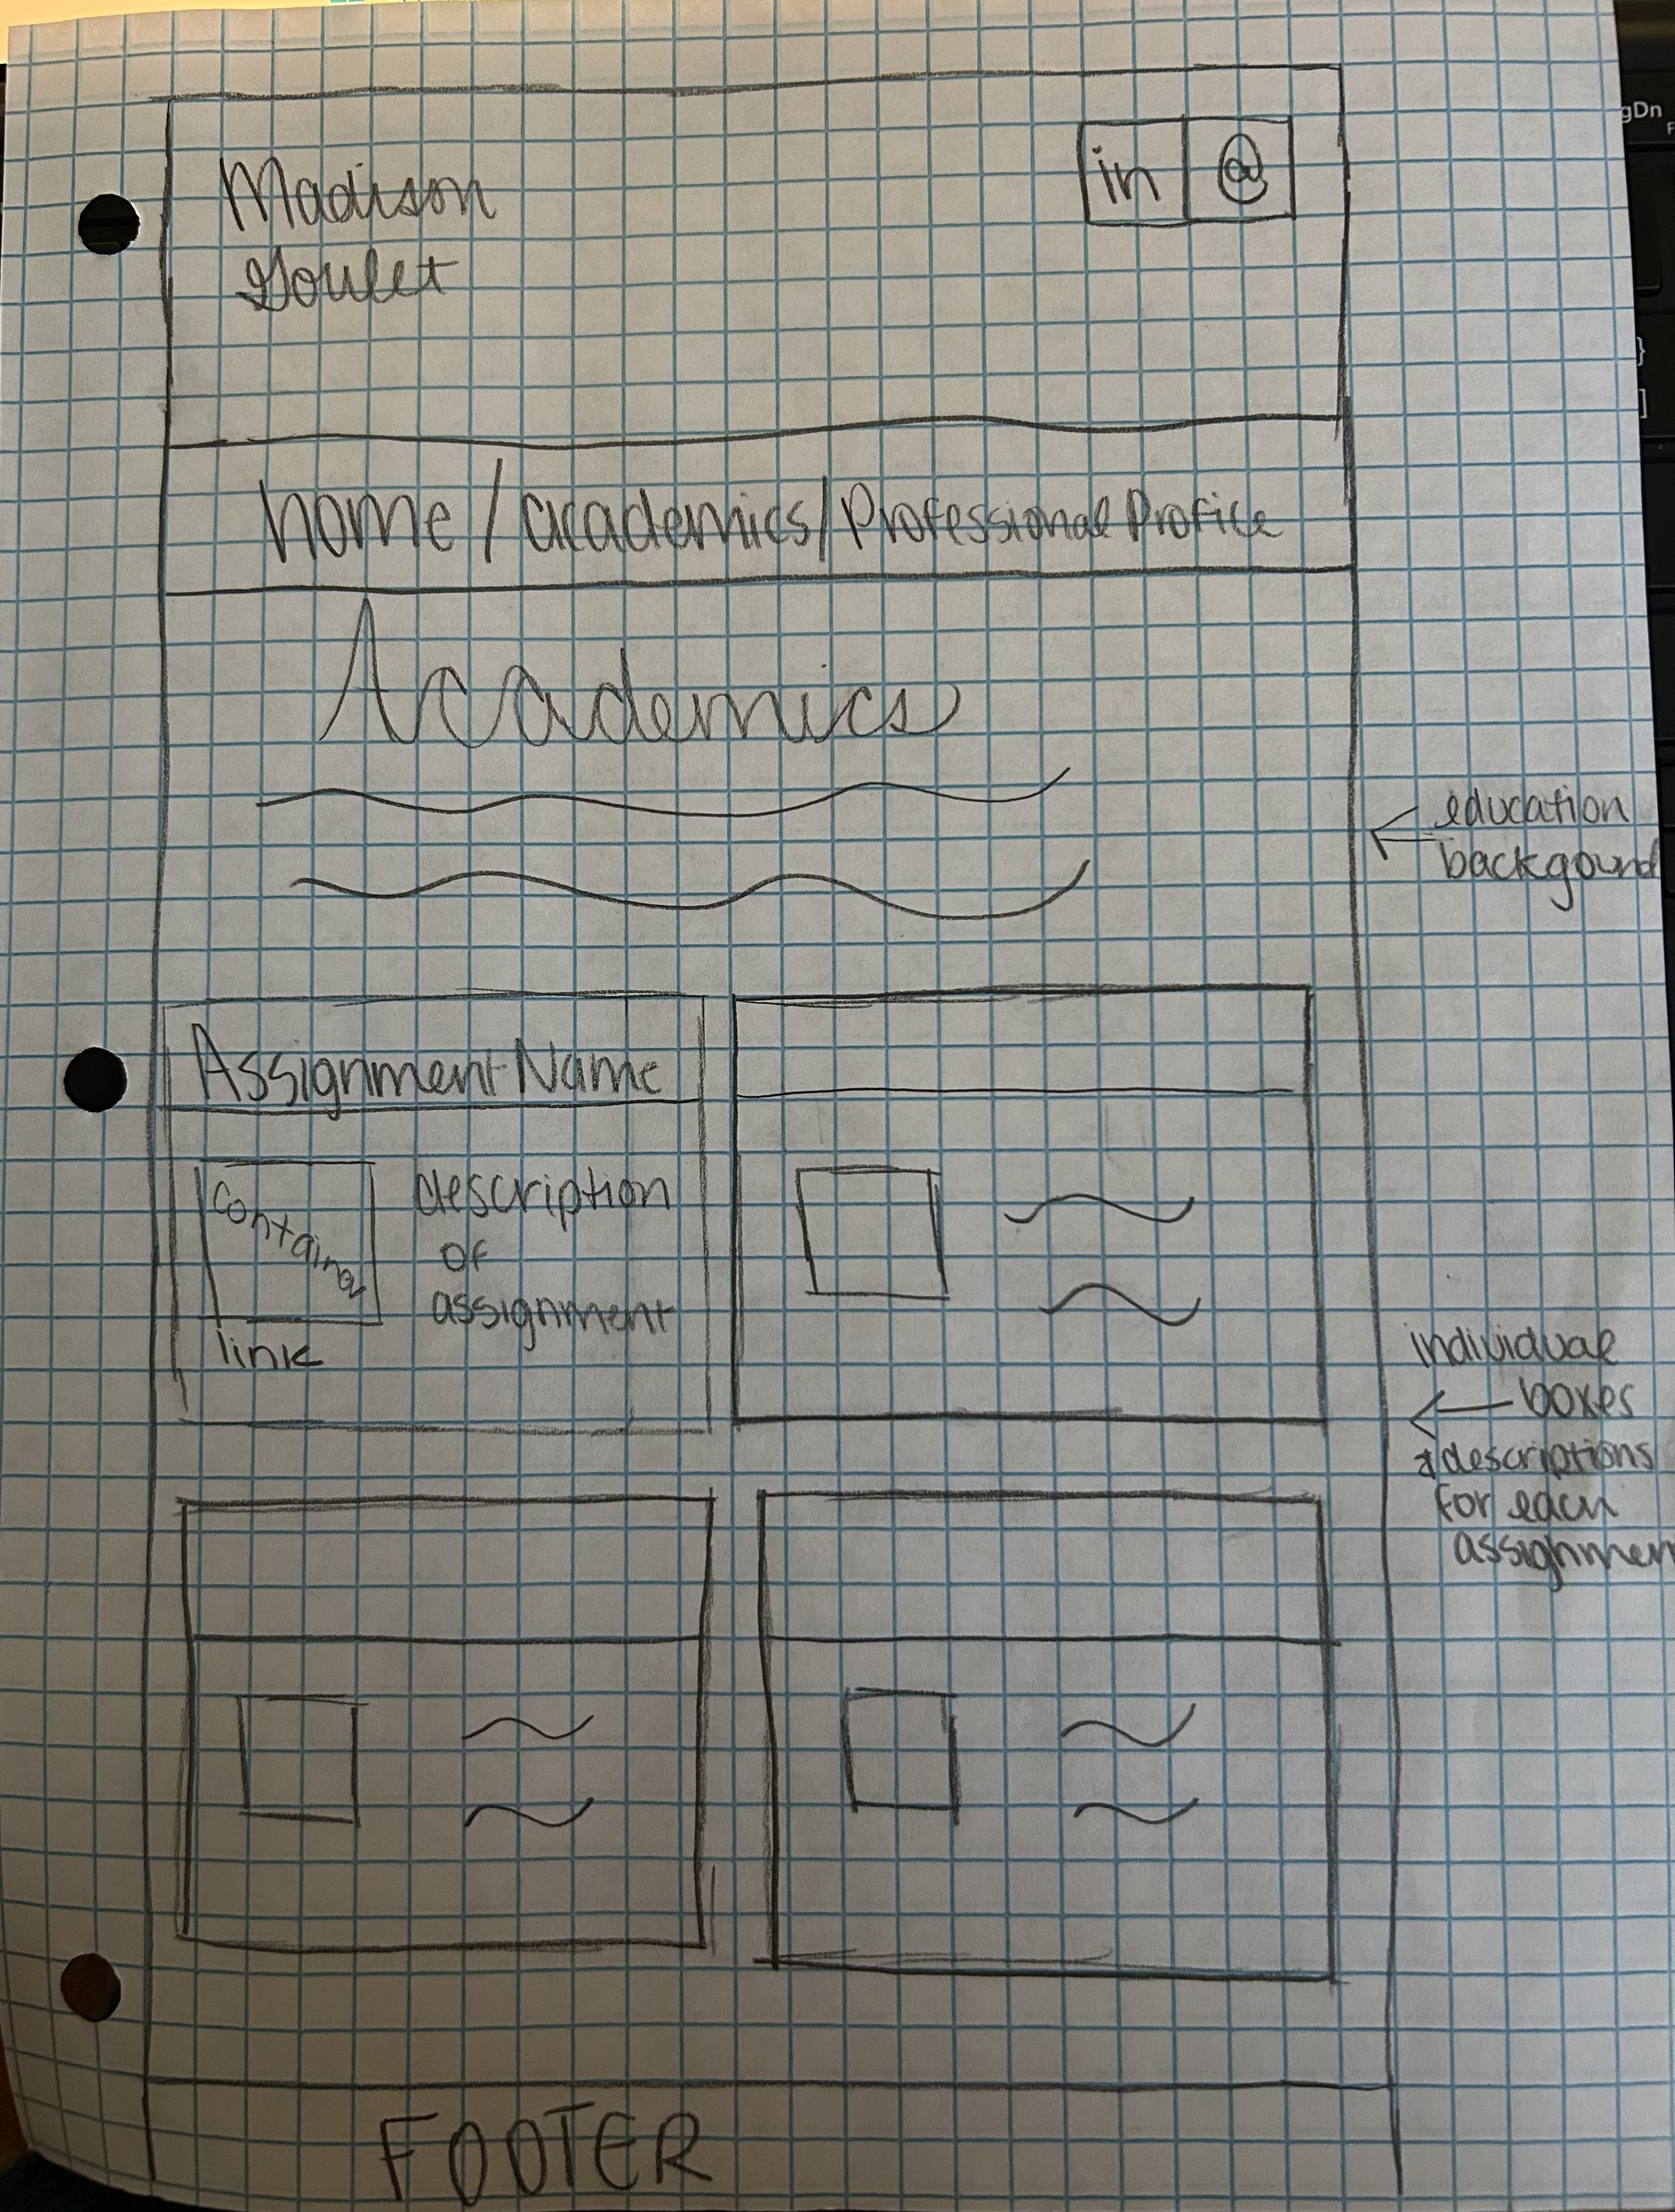 Madison
Goulet
in @
home / academics / Professional Profice
Academics
education
backgound
Assignment Name
container
link
description
of
assignment
individual
boxes
+ descriptions
for each
assignmen
FOOTER
gDn
F
}
]